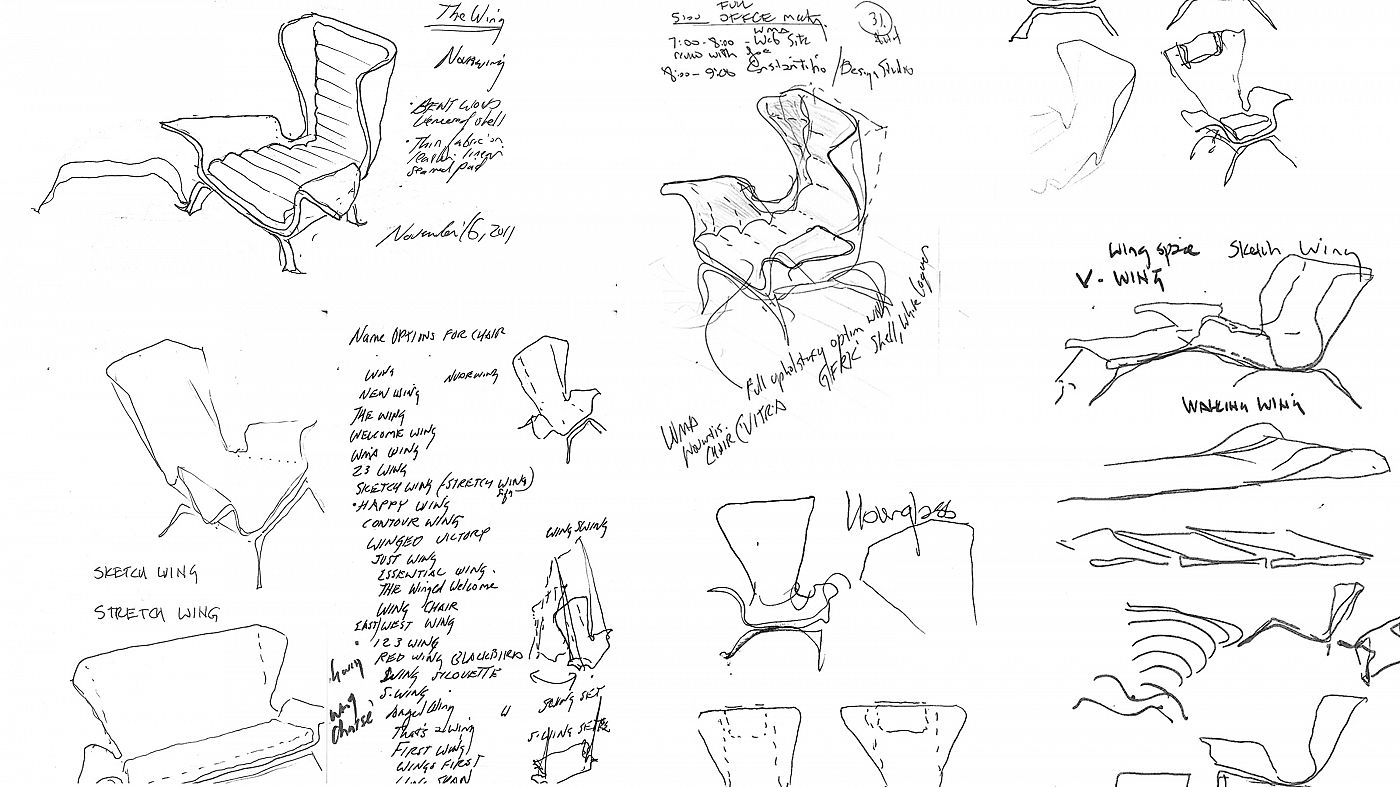 The Wing
Nouewing
• BENT WOOD
Veneered shell
• Thin fabric or
leather linear
seamed pad
November 16, 2011
FULL
5:00 OFFICE
7:00-8:00 - WMA Web Site
with Joe
8:00-9:00 Constantino / Design Studio
31.
Full upholstery option with
shell, white lacquer
WMA
CHAIR (VITRA
Wing spice Sketch Wing
V. WING
WALKING WING
Name OPTIONS FOR CHAIR
WING
NEW WING
THE WING
WELCOME WING
WMA WING
23 WING
SKETCH WING (STRETCH WING)
Sofa
• HAPPY WING
CONTOUR WING
WINGED VICTORY
JUST WING
ESSENTIAL WING.
THE Winged Welcome
WING CHAIR
EAST/WEST WING
• 123 WING
RED WING BLACKBIRD
WING SILOUETTE
S. WING
Angel Wing
That's a Wing
FIRST WING
WINGS FIRST
WING SWING
S. WING SETTEE
SKETCH WING
STRETCH WING
Hourglass